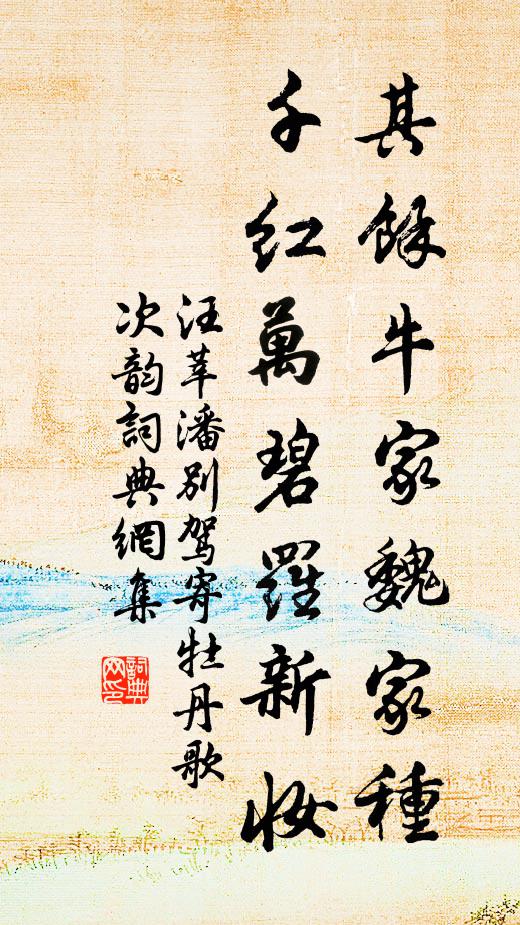 其餘牛家魏家種
千紅萬碧羅新妝
汪莘潘別駕寄牡丹歌
次韵詞典網集
詞典网印